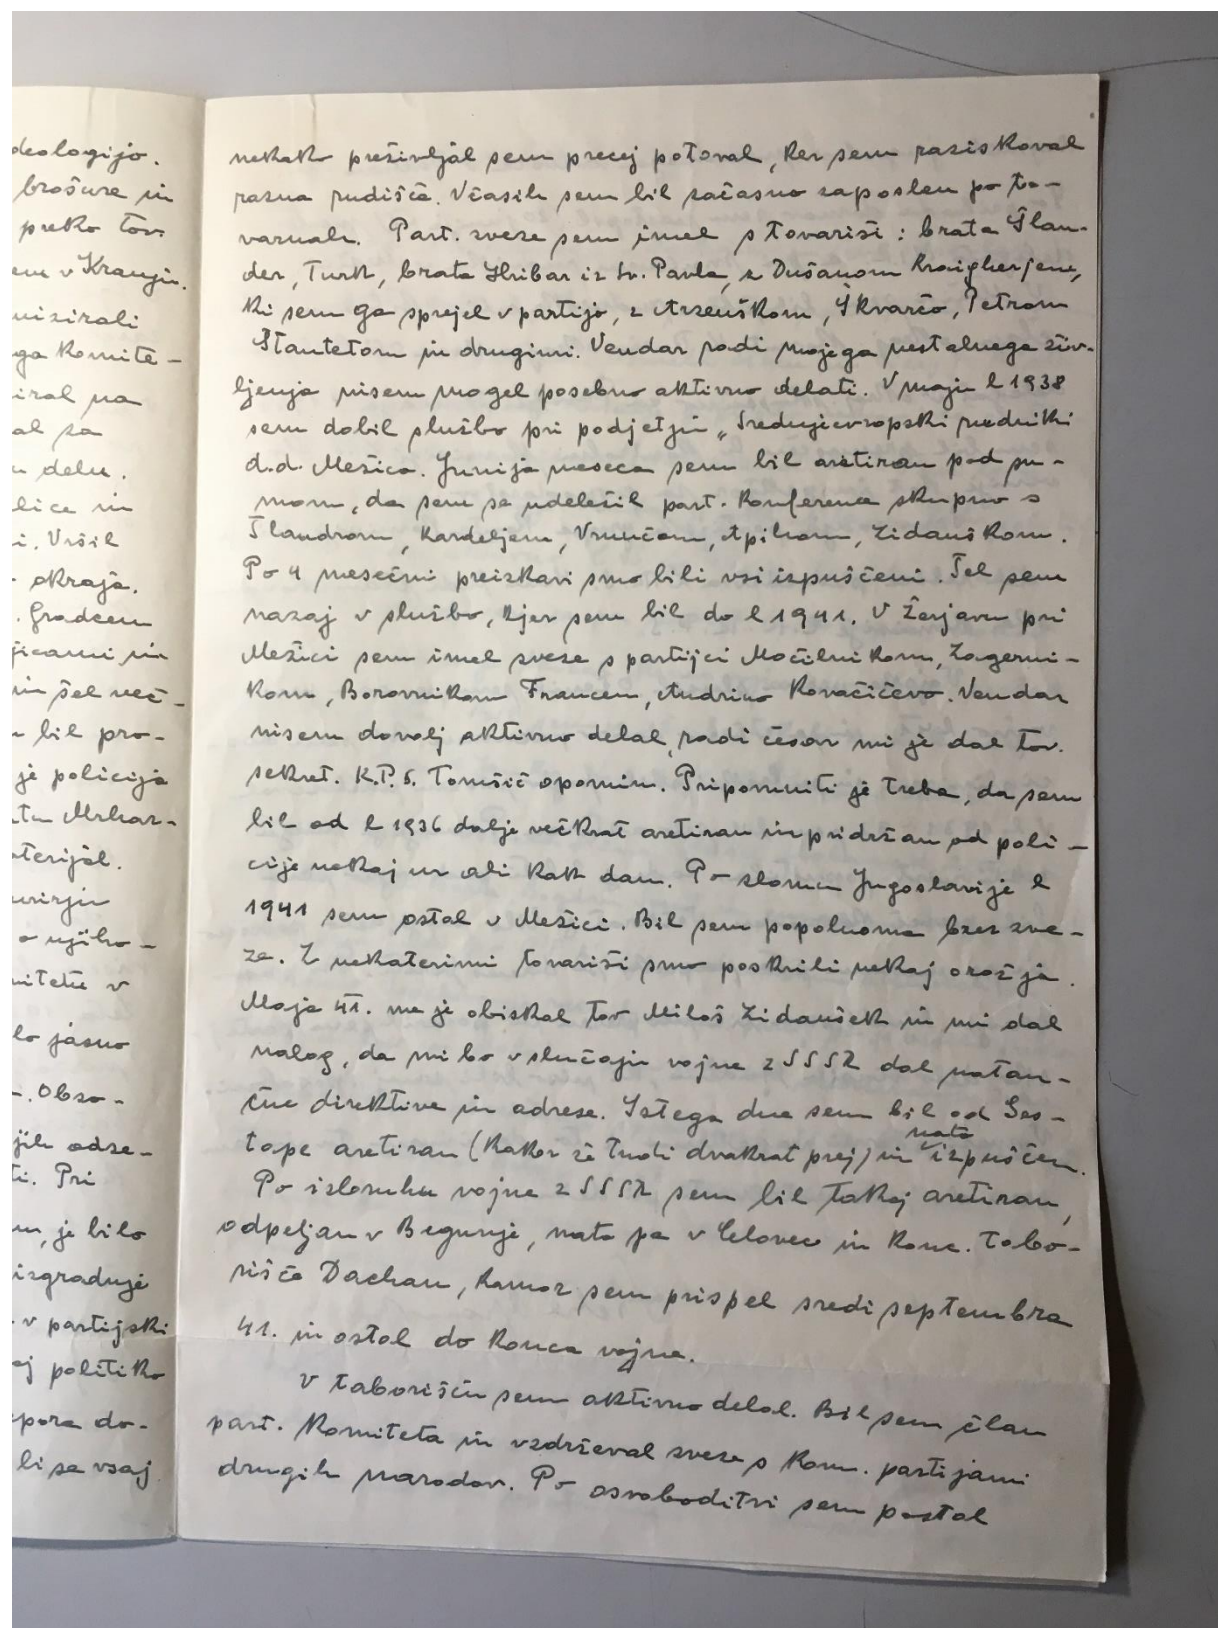 deologijo.
brošure in
preko tov.
em v Kranju.
nizirali
ga komite-
iral na
al za
u delu.
lice in
i. Vršil
okraja.
. Gradcem
jicami in
in šel več-
m bil pro-
je policija
tu Mrhar-
aterijal.
o njiho-
mitetu v
lo jasno
-. Obso-
jih odse-
ti. Pri
m, je bilo
izgraduje
v partijski
ej politiko
pora do-
li se vsaj
nekako preživljal sem precej potoval, ker sem raziskoval
razna rudišča. Včasih sem bil začasno zaposlen po to-
varnah. Part. zveze sem imel s tovariši: brata Šlan-
der, Turk, brata Hribar iz Sv. Pavla, z Dušanom Kraigherjem,
ki sem ga sprejel v partijo, z Arzenškom, Škvarčo, Petrom
Stantetom in drugimi. Vendar radi mojega nestalnega živ-
ljenja nisem mogel posebno aktivno delati. V maju l 1938
sem dobil službo pri podjetju „Srednjeevropski rudniki
d.d. Mežica. Junija meseca sem bil aretiran pod su-
mom, da sem se udeležil part. konference skupno s
Šlandrom, Kardeljem, Vrunčom, Apihom, Zidanškom.
Po 4 mesečni preizkavi smo bili vsi izpuščeni. Šel sem
nazaj v službo, kjer sem bil do l 1941. V Žerjavu pri
Mežici sem imel zveze s partijci Močilnikom, Zagerni-
kom, Borovnikom Francem, Andrino Kovačičevo. Vendar
nisem dovolj aktivno delal, radi česar mi je dal tov.
sekret. K.P.S. Tomšič opomin. Pripomniti je treba, da sem
bil od l 1936 dalje večkrat aretiran in pridržan od poli-
cije nekaj ur ali kak dan. Po zlomu Jugoslavije l
1941 sem ostal v Mežici. Bil sem popolnoma brez zve-
ze. Z nekaterimi tovariši smo poskrili nekaj orožja.
Maja 41. me je obiskal tov Miloš Zidanšek in mi dal
nalog, da mi bo v slučaju vojne z SSSR dal natan-
čne direktive in adrese. Istega dne sem bil od Ges-
tape aretiran (kakor že tudi dvakrat prej) in nato izpuščen.
Po izbruhu vojne z SSSR sem bil takoj aretiran,
odpeljan v Begunje, nato pa v Celovec in konc. tabo-
rišče Dachau, kamor sem prispel sredi septembra
41. in ostal do konca vojne.
V taborišču sem aktivno delal. Bil sem član
part. komiteta in vzdrževal zveze s kom. partijami
drugih narodov. Po osvoboditvi sem postal